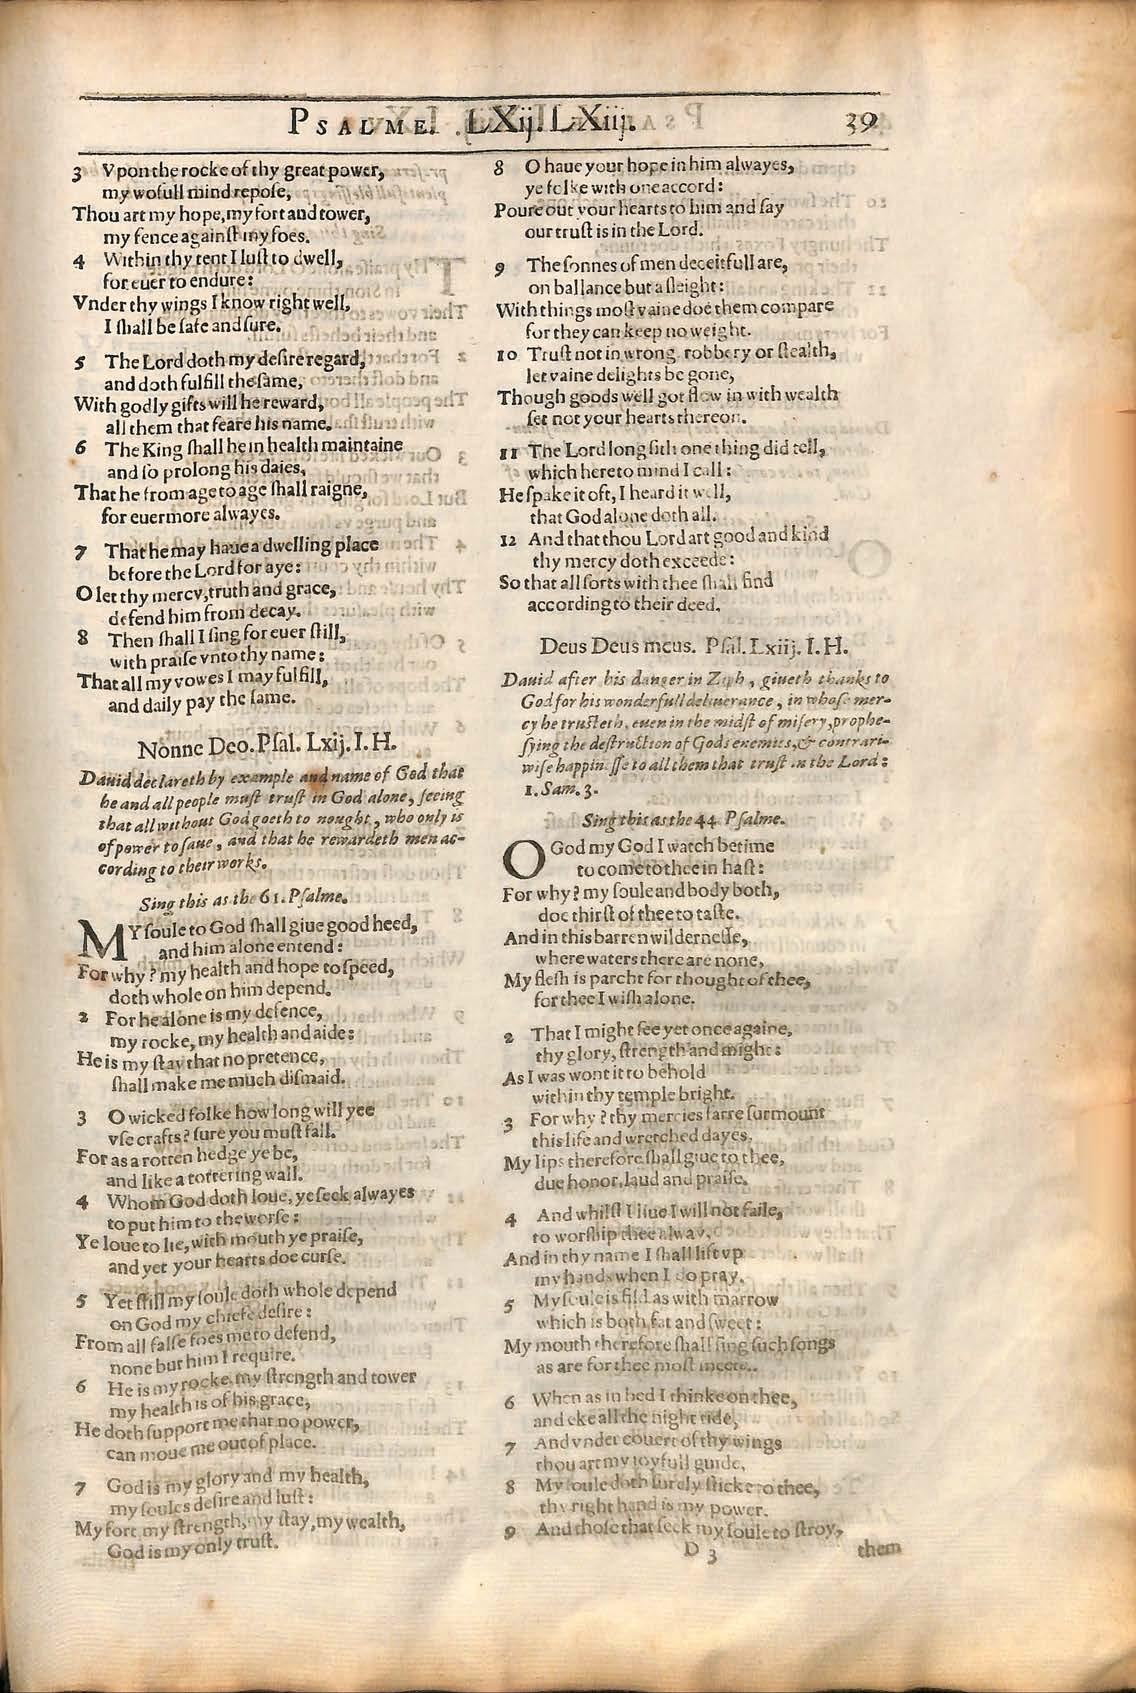 PSALME. LXij. LXiij. 39
3 Vpon the rocke of thy great power,
my wofull mind repose,
Thou art my hope, my fort and tower,
my fence against my foes.
4 Within thy tent I lust to dwell,
for euer to endure:
Vnder thy wings I know right well,
I shall be safe and sure.
5 The Lord doth my desire regard,
and doth fulfill the same,
With godly gifts will he reward,
all them that feare his name.
6 The King shall he in health maintaine
and so prolong his daies,
That he from age to age shall raigne,
for euermore alwayes.
7 That he may haue a dwelling place
before the Lord for aye:
O let thy mercy, truth and grace,
defend him from decay.
8 Then shall I sing for euer still,
with praise vnto thy name:
That all my vowes I may fulfill,
and daily pay the same.
Nonne Deo. Psal. Lxij. I. H.
Dauid declareth by example and name of God that
he and all people must trust in God alone, seeing
that all without God goeth to nought, who only is
of power to saue, and that he rewardeth men ac-
cording to their works.
Sing this as the 61. Psalme.
MY soule to God shall giue good heed,
and him alone entend:
For why? my health and hope to speed,
doth whole on him depend.
2 For he alone is my defence,
my rocke, my health and aide:
He is my stay that no pretence,
shall make me much dismaid.
3 O wicked folke how long will yee
vse crafts? sure you must fall.
For as a rotten hedge ye be,
and like a tottering wall.
4 Whom God doth loue, ye seek alwayes
to put him to the worse:
Ye loue to lie, with mouth ye praise,
and yet your hearts doe curse.
5 Yet still my soule doth whole depend
on God my chiefe desire:
From all false foes me to defend,
none but him I require.
6 He is my rocke, my strength and tower
my health is of his grace,
He doth support me that no power,
can moue me out of place.
7 God is my glory and my health,
my soules desire and lust:
My fort, my strength, my stay, my wealth,
God is my only trust.
8 O haue your hope in him alwayes,
ye folke with one accord:
Poure out your hearts to him and say
our trust is in the Lord.
9 The sonnes of men deceitfull are,
on ballance but a sleight:
With things most vaine doe them compare
for they can keep no weight.
10 Trust not in wrong, robbery or stealth,
let vaine delights be gone,
Though goods well got flow in with wealth
set not your hearts thereon.
11 The Lord long sith one thing did tell,
which here to mind I call:
He spake it oft, I heard it well,
that God alone doth all.
12 And that thou Lord art good and kind
thy mercy doth exceede:
So that all sorts with thee shall find
according to their deed.
Deus Deus meus. Psal. Lxiij. I. H.
Dauid after his danger in Ziph, giueth thanks to
God for his wonderfull deliuerance, in whose mer-
cy he trusteth, euen in the midst of misery, prophe-
sying the destruction of Gods enemies, & contrari-
wise happinesse to all them that trust in the Lord:
1. Sam. 3.
Sing this as the 44 Psalme.
O God my God I watch betime
to come to thee in hast:
For why? my soule and body both,
doe thirst of thee to taste.
And in this barren wildernesse,
where waters there are none,
My flesh is parcht for thought of thee,
for thee I wish alone.
2 That I might see yet once againe,
thy glory, strength and might:
As I was wont it to behold
within thy temple bright.
3 For why? thy mercies farre surmount
this life and wretched dayes,
My lips therefore shall giue to thee,
due honor, laud and praise.
4 And whilst I liue I will not faile,
to worship thee alway,
And in thy name I shall lift vp
my hands when I do pray.
5 My soule is fild as with marrow
which is both fat and sweet:
My mouth therefore shall sing such songs
as are for thee most meete.
6 When as in bed I thinke on thee,
and eke all the night tide,
7 And vnder couert of thy wings
thou art my ioyfull guide,
8 My soule doth surely sticke to thee,
thy right hand is my power.
9 And those that seek my soule to stroy,
D 3 them